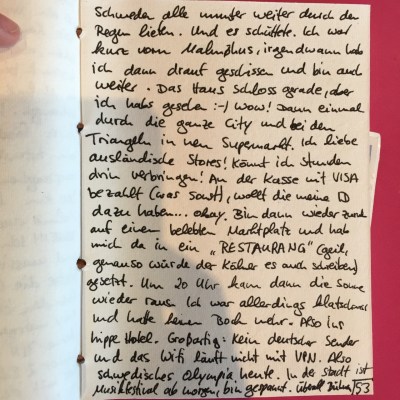 Schweden alle munter weiter durch den
Regen liefen. Und es schüttete. Ich war
kurz vorm Malmöhus, irgendwann hab
ich dann drauf geschissen und bin auch
weiter. Das Haus Schloss gerade, aber
ich habs gesehen :-) Wow! Dann einmal
durch die ganze City und bei den
Triangeln in nen Supermarkt. Ich liebe
ausländische Stores! Könnt ich Stunden
drin verbringen! An der Kasse mit VISA
bezahlt (was sonst), wollt die meine ID
dazu haben... okay. Bin dann wieder zurück
auf einen belebten Marktplatz und hab
mich da in ein „RESTAURANG" (geil,
genauso würde der Kölner es auch schreiben)
gesetzt. Um 20 Uhr kam dann die Sonne
wieder raus. Ich war allerdings klatschnass
und hatte keinen Bock mehr. Also ins
hippe Hotel. Großartig: Kein deutscher Sender
und das Wifi läuft nicht mit VPN. Also
schwedisches Olympia heute. In der Stadt ist
Musikfestival ab morgen, bin gespannt. Überall Bühnen
/53